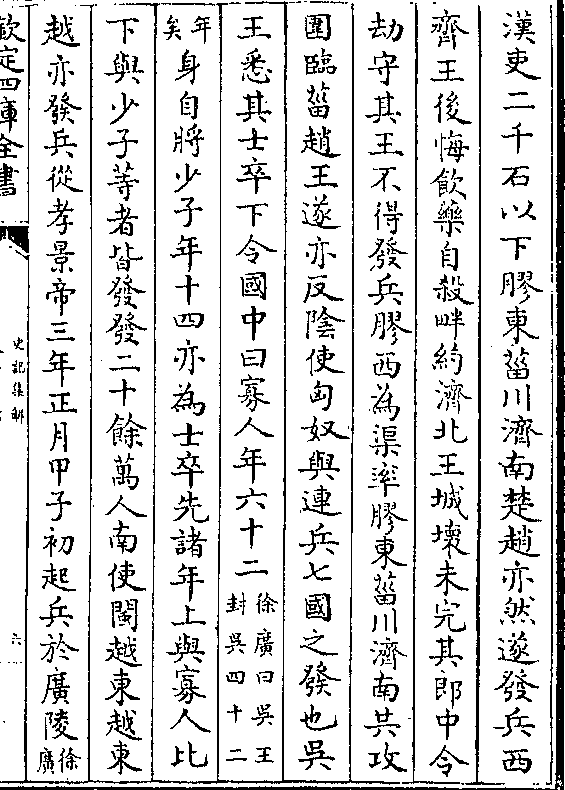 漢吏二千石以下膠東菑川濟南楚趙亦然遂發兵西
齊王後悔飲藥自殺畔約濟北王城壞未完其郎中令
劫守其王不得發兵膠西為渠率膠東菑川濟南共攻
圍臨菑趙王遂亦反陰使匈奴與連兵七國之發也吳
王悉其士卒下令國中曰寡人年六十二徐廣曰吳王封吳四十二
年矣身自將少子年十四亦為士卒先諸年上與寡人比
下與少子等者皆發發二十餘萬人南使閩越東越東
越亦發兵從孝景帝三年正月甲子初起兵於廣陵徐廣
欽定四庫全書
史記集解
六